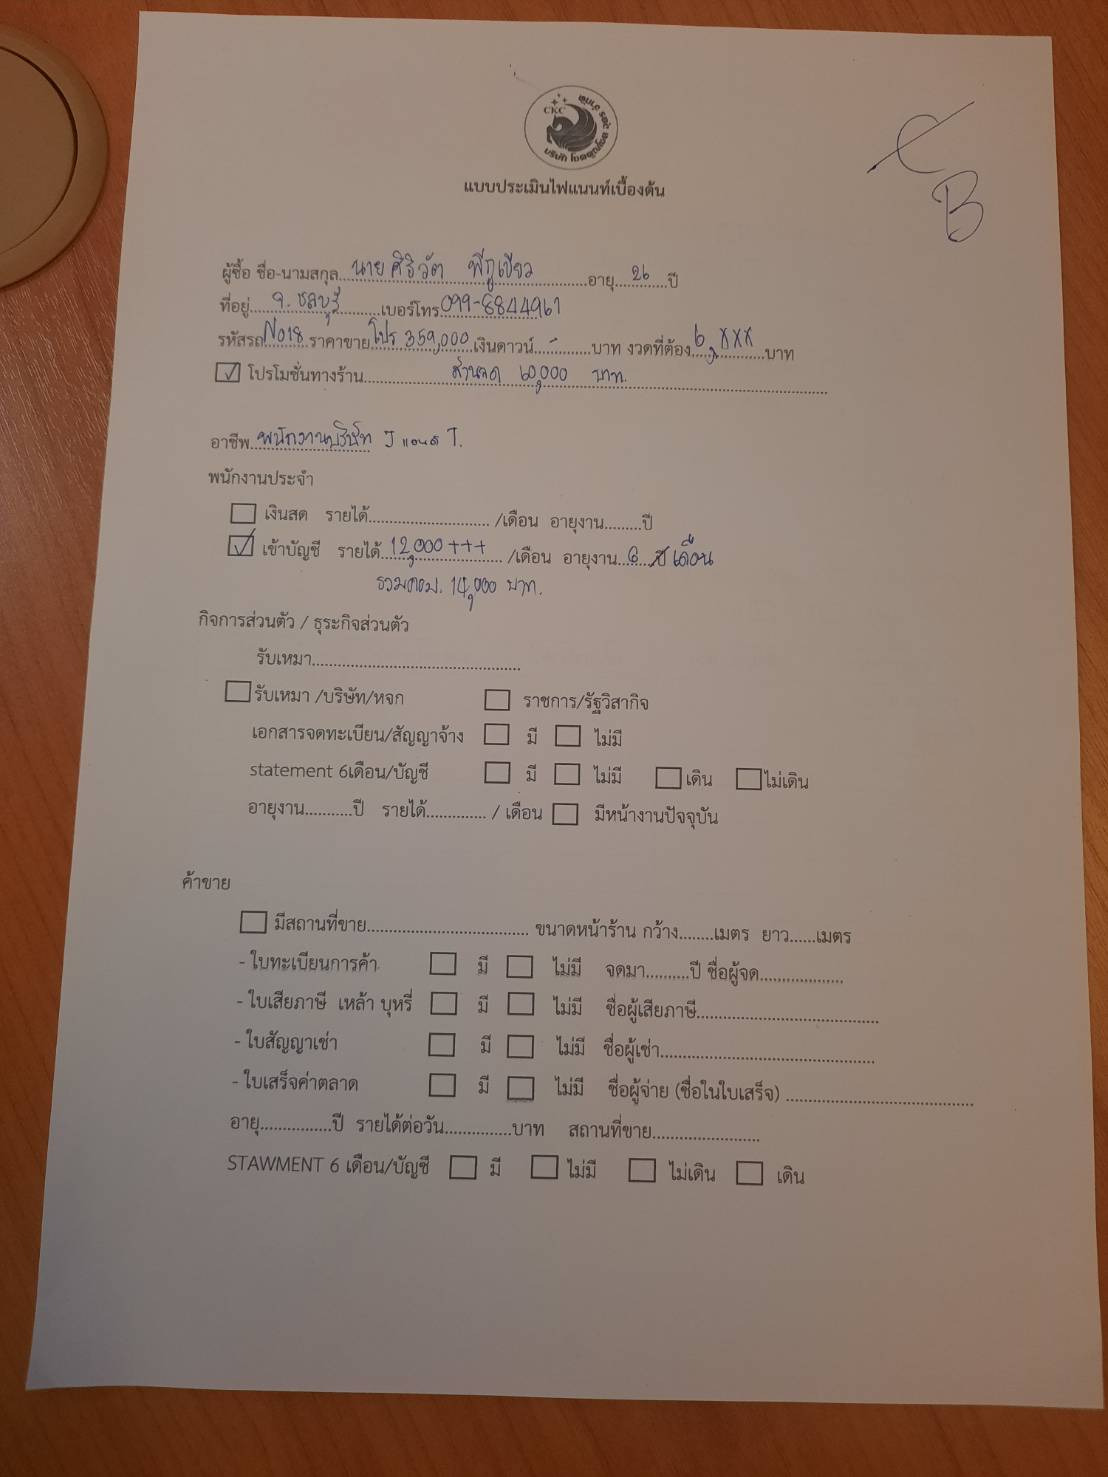 CKC
C
B
แบบประเมินไฟแนนท์เบื้องต้น
ผู้ซื้อ ชื่อ-นามสกุล...นาย ศิริวัต...อายุ...26...ปี
ที่อยู่...จ. ชลบุรี...เบอร์โทร 099-8844961
รหัสรถ No18 ราคาขาย โปร 359,000 เงินดาวน์...-...บาท งวดที่ต้อง 6,xxx บาท
☑ โปรโมชั่นทางร้าน...ส่วนลด 60,000 บาท.
อาชีพ พนักงานบริษัท J แอนด์ T.
พนักงานประจำ
☐ เงินสด รายได้.............................. /เดือน อายุงาน.........ปี
☑ เข้าบัญชี รายได้ 12,000+++ /เดือน อายุงาน...6...ปี เดือน
รวมคอม. 14,000 บาท.
กิจการส่วนตัว / ธุระกิจส่วนตัว
รับเหมา....................................................
☐ รับเหมา /บริษัท/หจก ☐ ราชการ/รัฐวิสากิจ
เอกสารจดทะเบียน/สัญญาจ้าง ☐ มี ☐ ไม่มี
statement 6เดือน/บัญชี ☐ มี ☐ ไม่มี ☐ เดิน ☐ ไม่เดิน
อายุงาน...........ปี รายได้.............. / เดือน ☐ มีหน้างานปัจจุบัน
ค้าขาย
☐ มีสถานที่ขาย....................................... ขนาดหน้าร้าน กว้าง........เมตร ยาว......เมตร
- ใบทะเบียนการค้า ☐ มี ☐ ไม่มี จดมา..........ปี ชื่อผู้จด....................
- ใบเสียภาษี เหล้า บุหรี่ ☐ มี ☐ ไม่มี ชื่อผู้เสียภาษี...........................................
- ใบสัญญาเช่า ☐ มี ☐ ไม่มี ชื่อผู้เช่า...................................................
- ใบเสร็จค่าตลาด ☐ มี ☐ ไม่มี ชื่อผู้จ่าย (ชื่อในใบเสร็จ) .............................................
อายุ.................ปี รายได้ต่อวัน................บาท สถานที่ขาย.........................
STAWMENT 6 เดือน/บัญชี ☐ มี ☐ ไม่มี ☐ ไม่เดิน ☐ เดิน